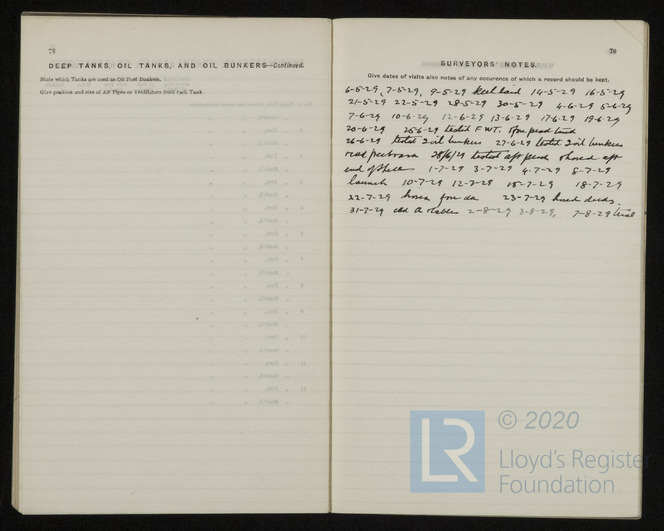 78
DEEP TANKS, OIL TANKS, AND OIL BUNKERS—Continued.
State which Tanks are used as Oil Fuel Bunkers.
Give position and size of Air Pipes or Ventilators from each Tank.
79
SURVEYORS' NOTES.
Give dates of visits also notes of any occurence of which a record should be kept.
6-5-29, 7-5-29, 9-5-29 Keel laid 14-5-29 16-5-29
21-5-29 22-5-29 28-5-29 30-5-29 4-6-29 5-6-29
7-6-29 10-6-29 12-6-29 13-6-29 17-6-29 19-6-29
20-6-29 25-6-29 tested F.W.T. fore peak
26-6-29 tested 2 oil bunkers 27-6-29 tested 2 oil bunkers
freeboard 28/6/29 tested aft peak aft
end of 1-7-29 3-7-29 4-7-29 8-7-29
launch 10-7-29 12-7-29 15-7-29 18-7-29
22-7-29 hosed 23-7-29 hosed decks.
31-7-29 2-8-29 3-8-29, 7-8-29 trial
LR
© 2020
Lloyd's Register
Foundation